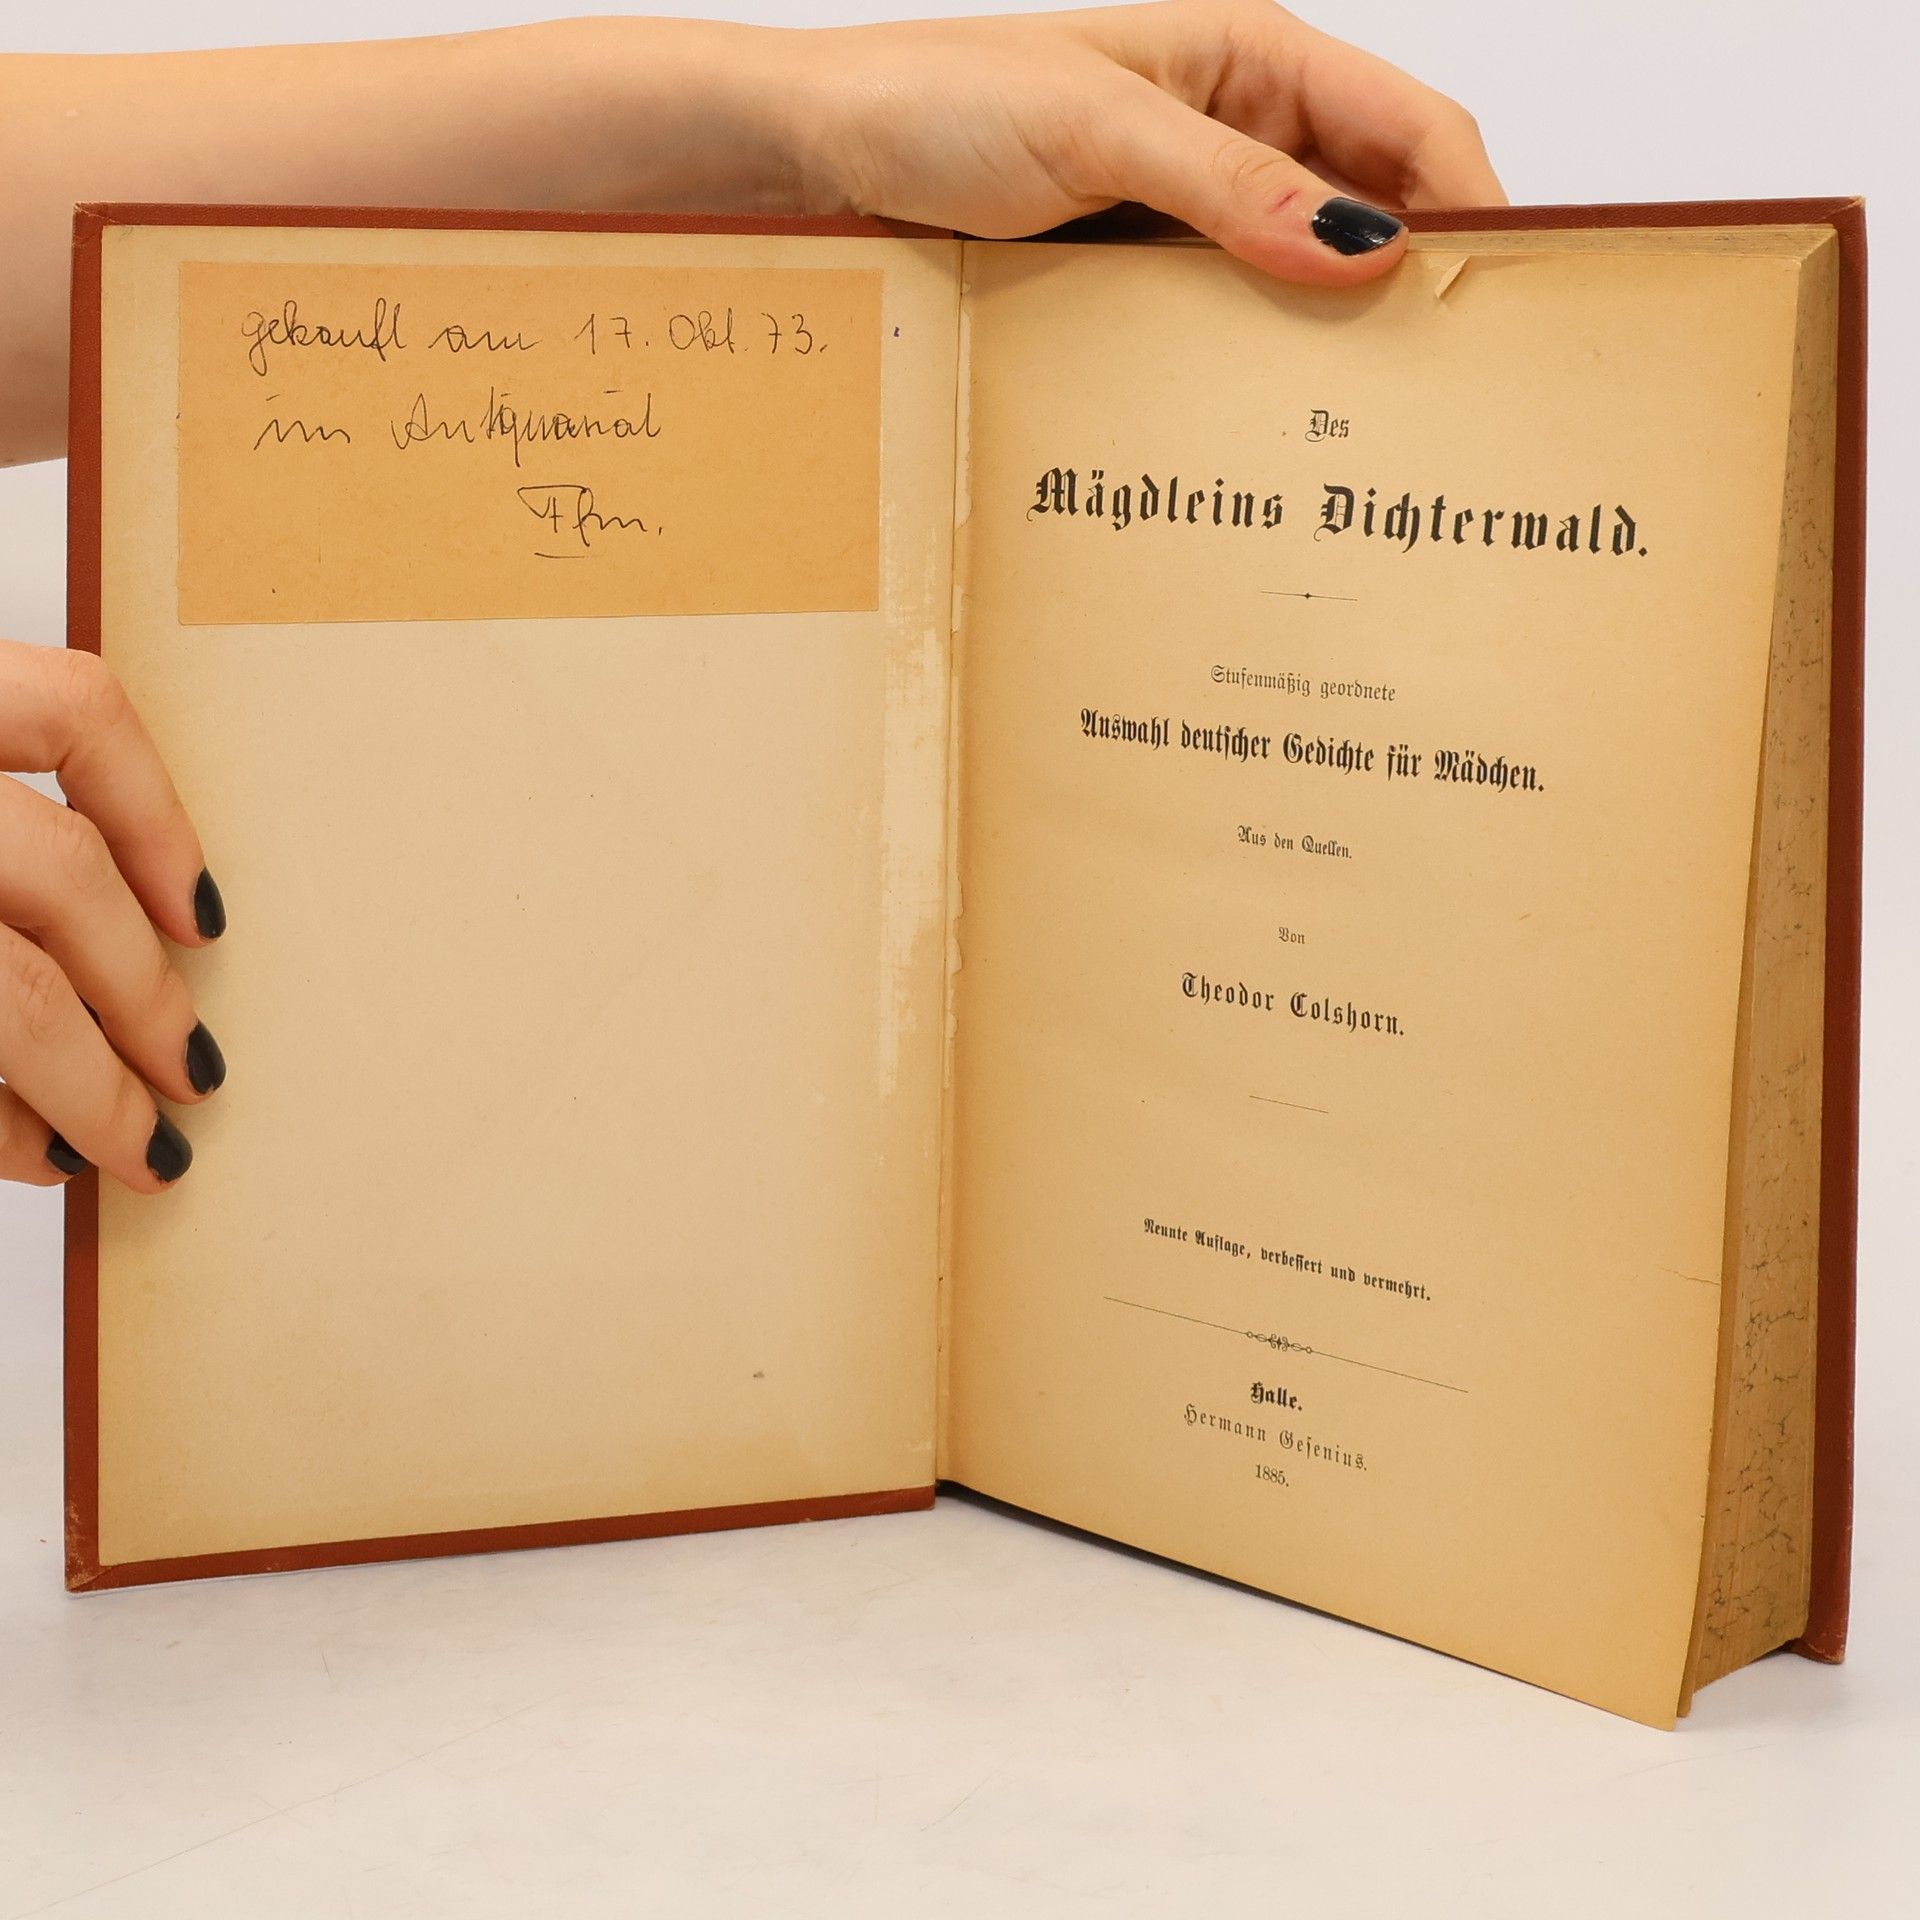 gekauft am 17. Okt. 73.
im Antiquariat
Des
Mägdleins Dichterwald.
Stufenmäßig geordnete
Auswahl deutscher Gedichte für Mädchen.
Aus den Quellen.
Von
Theodor Colshorn.
Neunte Auflage, verbessert und vermehrt.
Halle.
Hermann Gesenius.
1885.